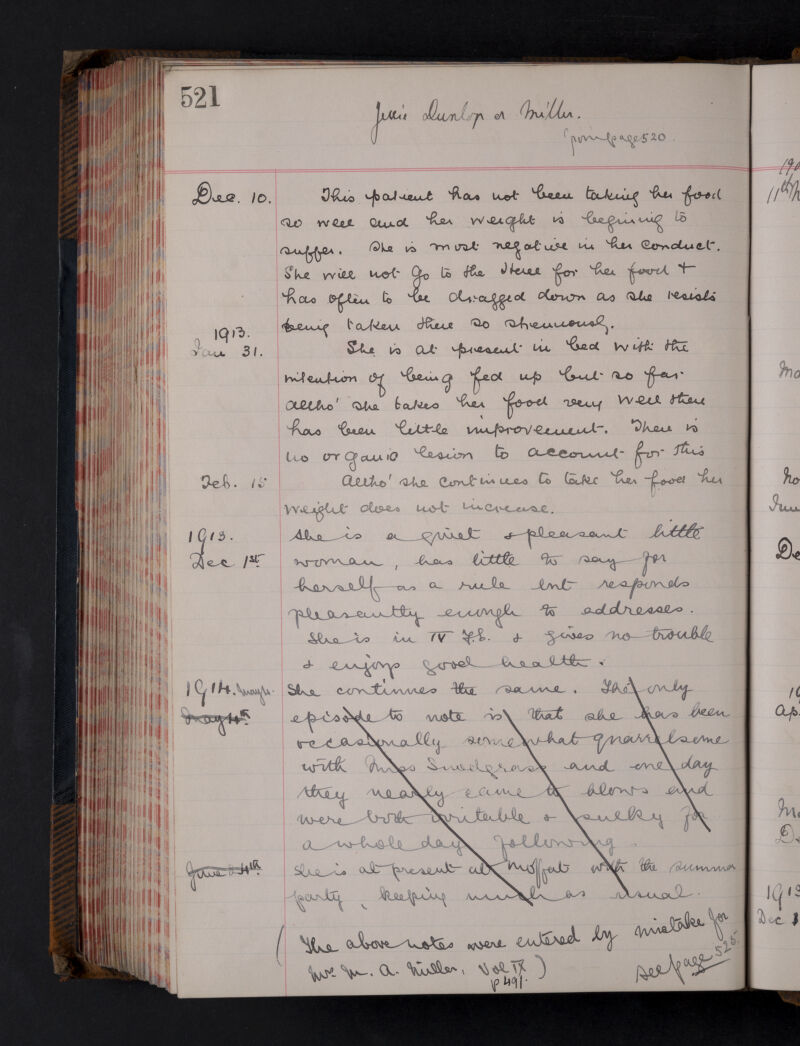 521
Jessie Dunlop or Miller.
from page 520.
Dec. 10. This patient has not been taking her food
so well and her weight is beginning to
suffer. She is most negative in her conduct.
She will not go to the for her food +
has often to be dragged down as she resists
being taken there so strenuously.
1913.
Jan 31. She is at present in bed with the
intention of being fed up but so far
altho' she takes her food very well there
has been little improvement. There is
no organic lesion to account for this
Feb. 15 Altho' she continues to take her food her
weight does not increase.
1913. She is a quiet & pleasant little
Dec 1st woman, has little to say for
herself as a rule but responds
pleasantly enough to addresses.
She is in IV & gives no trouble
& enjoys good health.
1914. May 4. She continues the same. The only
May 4th episode to note is that she has been
occasionally somewhat quarrelsome
with Miss Snodgrass and one day
they nearly came to blows and
were both irritable & sulky for
a whole day following.
June 24th She is at present at Moffat with the summer
party, keeping much as usual.
(The above notes were entered by mistake for
Mrs M. A. Miller, Vol IX )
p 491.
see page 525.
190
11th
Ma
No
June
De
19
Ap.
Ma
D
1915
Dec